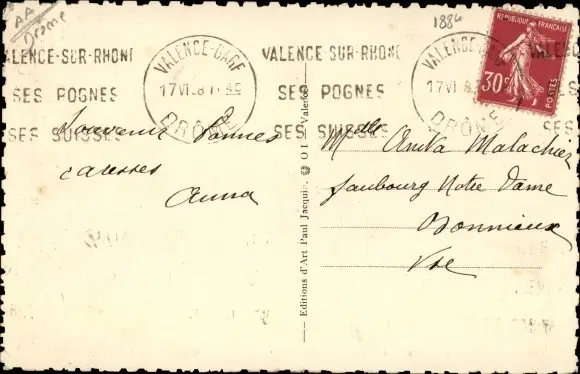 AA
Drôme
1884
VALENCE-SUR-RHONE
SES POGNES
SES SUISSES
VALENCE-GARE
17 VI 38 1
DRÔME
VALENCE-SUR-RHONE
SES POGNES
SES SUISSES
VALENCE-GARE
17 VI 3
DRÔME
REPUBLIQUE FRANÇAISE
30c
POSTES
Souvenir Bonnes
caresses
Anna
Editions d'Art Paul Jacquin
Valence
Melle Anita Malachier
faubourg Notre Dame
Bonnieux
Vse